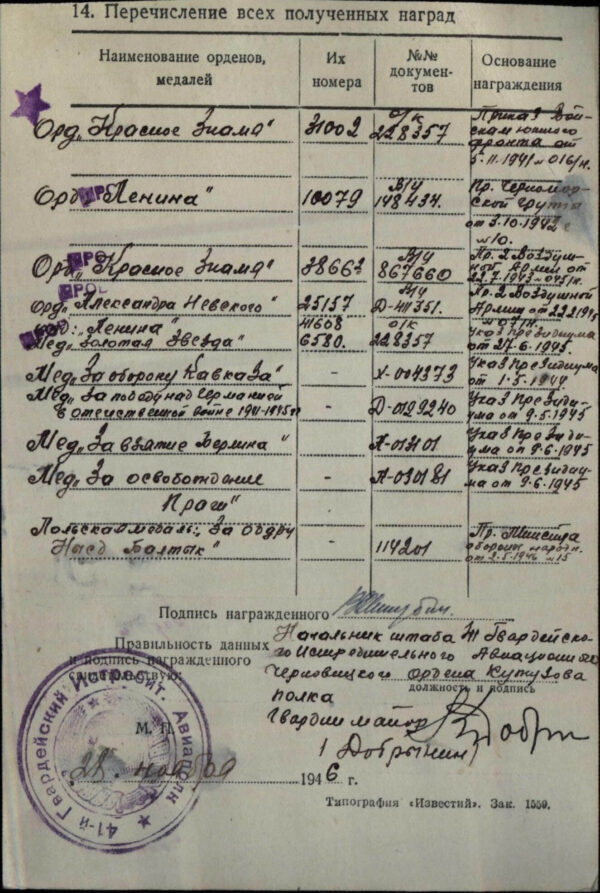 14. Перечисление всех полученных наград
Наименование орденов, медалей
Их номера
№№ документов
Основание награждения
Орд „Красное Знамя" 31002 о/к 228357 Приказ Войскам южного фронта от 5.11.1941 № 016/н.
Орд „Ленина" 10079 в/у 148434. Пр. Черноморской группы от 3.10.1942 г №10.
Орд „Красное Знамя" 38662 в/у 867660 Пр. 2 Воздушной Армии от
Орд „Александра Невского" 25157 в/у Д-411351. Пр. 2 Воздушной Армии от
Орд: „Ленина" 41608 о/к
Мед „Золотая Звезда" 6580. 228357 Указ Президиума от 27.6.1945.
Мед „За оборону Кавказа" - Х-014373 Указ Президиума от 1.5.1944
Мед „За победу над Германией
в отечественной войне 1941-1945 гг - Д-0199240 Указ Президиума от 9.5.1945
Мед „За взятие Берлина" - А-013101 Указ Президиума от 9.6.1945
Мед „За освобождение - А-030181 Указ Президиума от 9.6.1945
Праги"
Польская медаль: „За Одру
Нысу Балтык" - 114201 Пр. обороны народн. от 2.5.1946 №15
Подпись награжденного
Правильность данных
и подпись награжденного
свидетельствую:
Начальник штаба 41 Гвардейско-
го Истребительного Авиационного
Черновицкого ордена Кутузова
должность и подпись
полка
Гвардии майор
(Добрынин)
М. П.
28. ноября 1946 г.
41-й Гвардейский Истребит. Авиаполк
Типография «Известий». Зак. 1559.